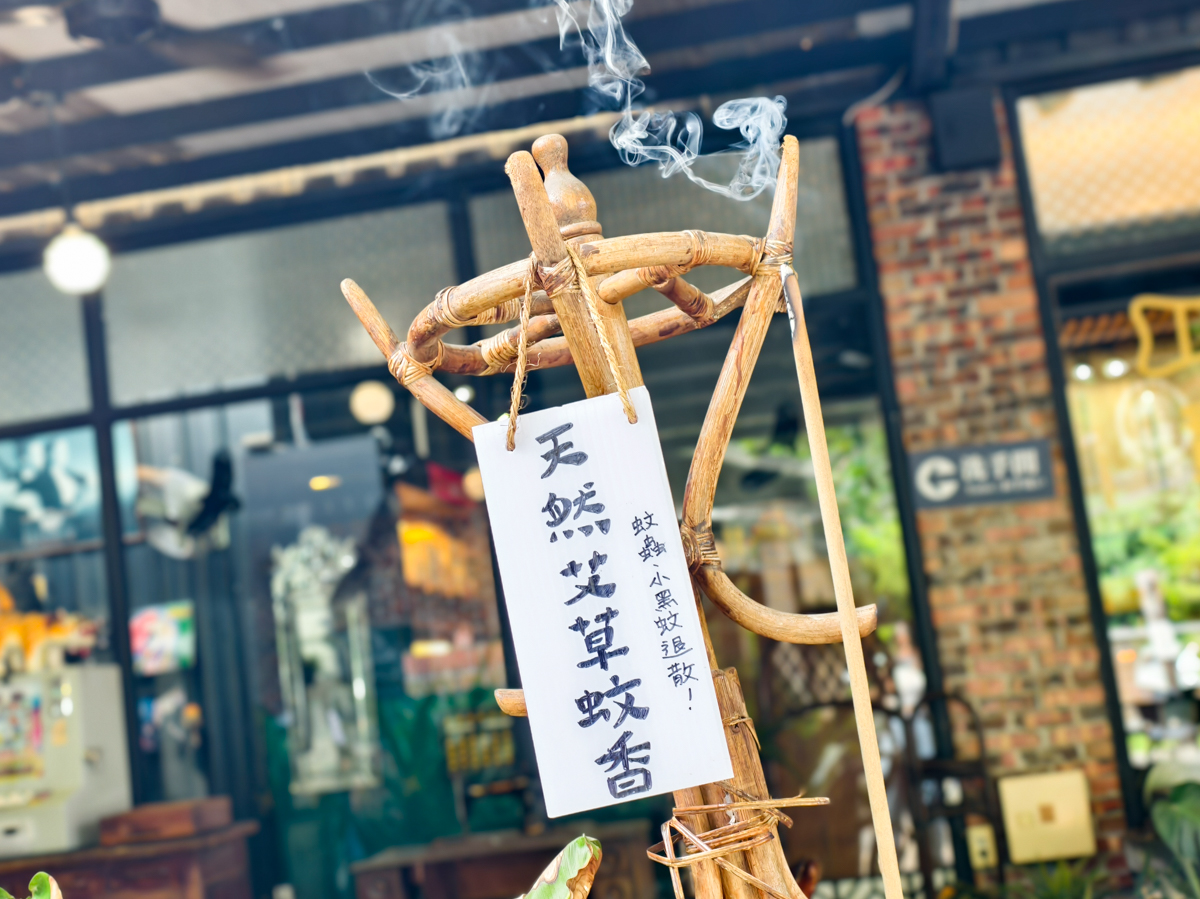 天然艾草蚊香
蚊蟲、小黑蚊退散！
洗手間